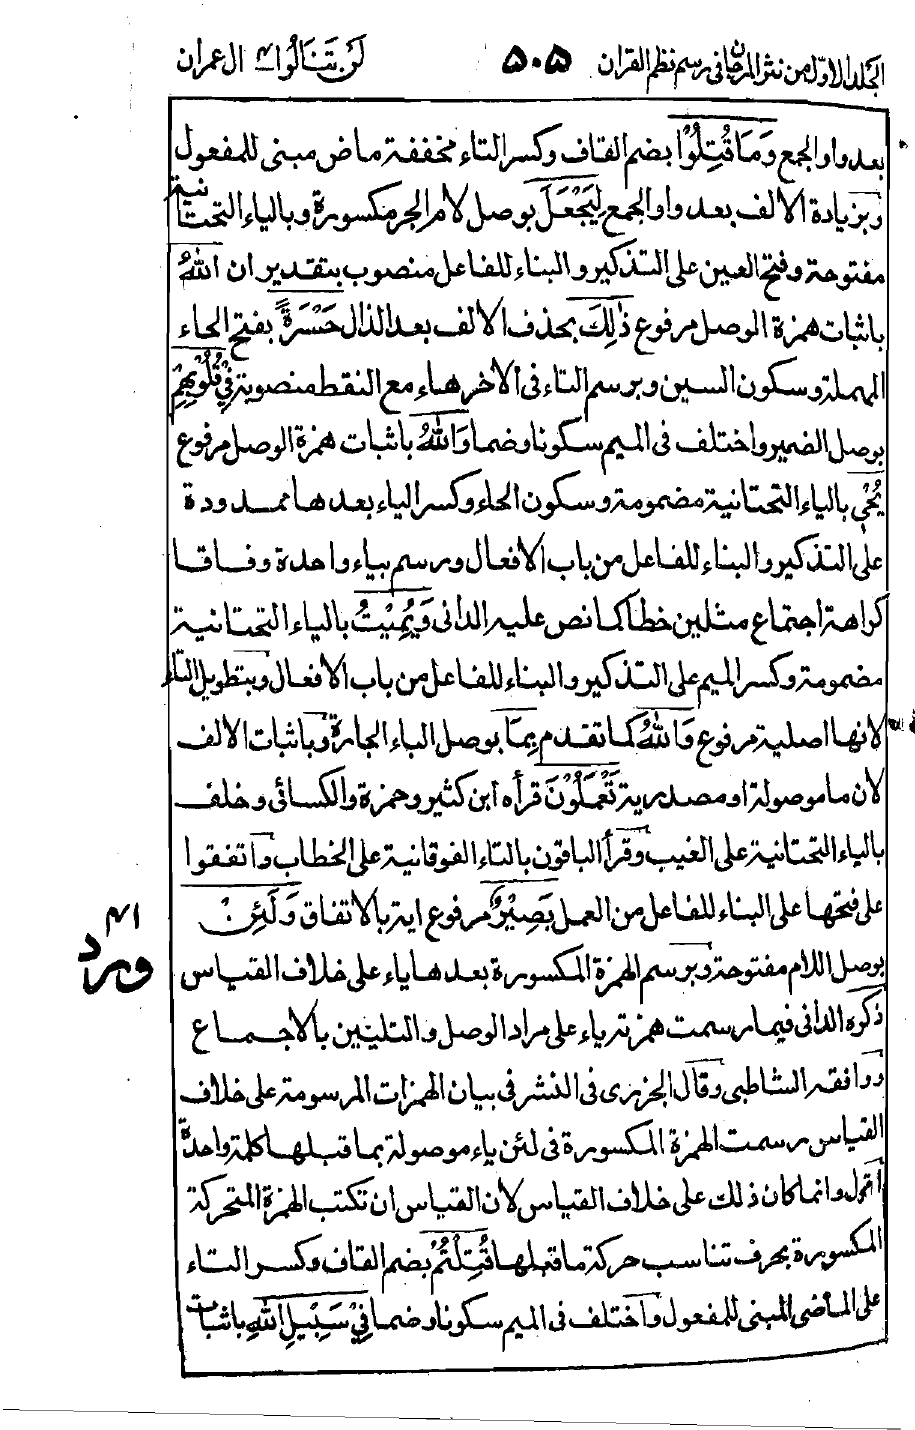 الجلد الاول من نثر المرجان في رسم نظم القران ٥٠٥ لَنْ تَنَالُوا ۴ ال عمران
بعد واو الجمع وَمَا قُتِلُوْا بضم القاف وكسر التاء مخففة ماض مبنى للمفعول
وبزيادة الالف بعد واو الجمع لِيَجْعَلَ بوصل لام الجر مكسورة وبالياء التحتانية
مفتوحة وفتح العين على التذكير والبناء للفاعل منصوب بتقدير ان اللهُ
باثبات همزة الوصل مرفوع ذٰلِكَ بحذف الالف بعد الذال حَسْرَةً بفتح الحاء
المهملة وسكون السين وبرسم التاء فى الاخر هاء مع النقط منصوبة فِيْ قُلُوْبِهِمْ
بوصل الضمير واختلف فى الميم سكونا وضما وَاللهُ باثبات همزة الوصل مرفوع
يُحْيٖ بالياء التحتانية مضمومة وسكون الحاء وكسر الياء بعدها ممدودة
على التذكير والبناء للفاعل من باب الافعال ورسم بياء واحدة وفاقا
كراهة اجتماع مثلين خطا كما نص عليه الدانى وَيُمِيْتُ بالياء التحتانية
مضمومة وكسر الميم على التذكير والبناء للفاعل من باب الافعال وبتطويل التاء
لانها اصلية مرفوع وَاللهُ كما تقدم بِمَا بوصل الباء الجارة وباثبات الالف
لان ما موصولة او مصدرية تَعْمَلُوْنَ قرأه ابن كثير وحمزة والكسائى وخلف
بالياء التحتانية على الغيب وقرأ الباقون بالتاء الفوقانية على الخطاب واتفقوا
على فتحها على البناء للفاعل من العمل بَصِيْرٌ مرفوع اية بالاتفاق وَلَئِنْ
بوصل اللام مفتوحة وبرسم الهمزة المكسورة بعدها ياء على خلاف القياس
ذكره الدانى فيما رسمت همزته ياء على مراد الوصل والتليين بالاجماع
ووافقه الشاطبى وقال الجزرى فى النشر فى بيان الهمزات المرسومة على خلاف
القياس رسمت الهمزة المكسورة فى لئن ياء موصولة بما قبلها كلمة واحدة
أقول وانما كان ذلك على خلاف القياس لان القياس ان تكتب الهمزة المتحركة
المكسورة بحرف تناسب حركة ما قبلها قُتِلْتُمْ بضم القاف وكسر التاء
على الماضى المبنى للمفعول واختلف فى الميم سكونا وضما فِيْ سَبِيْلِ اللهِ باثبات